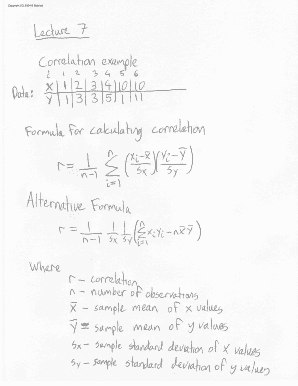 Lecture 7
Correlation example
i 1 2 3 4 5 6
Data: X 1 2 3 4 10 10
Y 1 3 3 5 1 11
Formula for calculating correlation
r = 1/(n-1) Σ_{i=1}^{n} ((x_i - x̄)/s_x)((y_i - ȳ)/s_y)
Alternative Formula
r = 1/(n-1) 1/s_x 1/s_y (Σ_{i=1}^{n} x_i y_i - n x̄ ȳ)
Where
r - correlation
n - number of observations
x̄ - sample mean of x values
ȳ = sample mean of y values
s_x - sample standard deviation of x values
s_y - sample standard deviation of y values